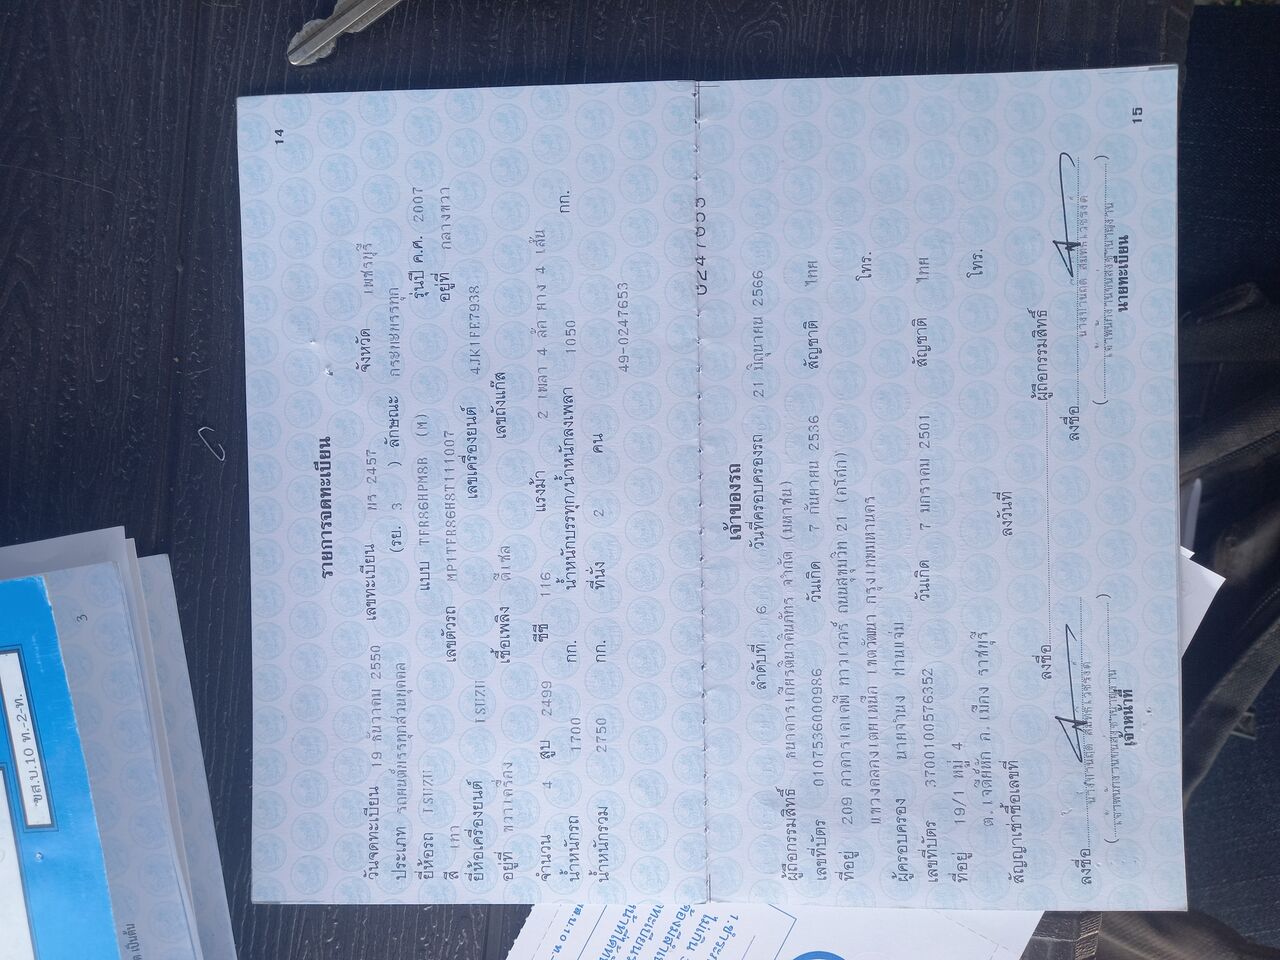 14
รายการจดทะเบียน
วันจดทะเบียน 19 ธันวาคม 2550 เลขทะเบียน บร 2457 จังหวัด เพชรบุรี
ประเภท รถยนต์บรรทุกส่วนบุคคล (รย. 3 ) ลักษณะ กระบะบรรทุก
ยี่ห้อรถ ISUZU แบบ TFR86HPM8B (M) รุ่นปี ค.ศ. 2007
สี เทา เลขตัวรถ MP1TFR86H8T111007 อยู่ที่ กลางขวา
ยี่ห้อเครื่องยนต์ ISUZU เลขเครื่องยนต์ 4JK1FE7938
อยู่ที่ ขวาเครื่อง เชื้อเพลิง ดีเซล เลขถังแก๊ส
จำนวน 4 สูบ 2499 ซีซี 116 แรงม้า 2 เพลา 4 ล้อ ยาง 4 เส้น
น้ำหนักรถ 1700 กก. น้ำหนักบรรทุก/น้ำหนักลงเพลา 1050 กก.
น้ำหนักรวม 2750 กก. ที่นั่ง 2 คน
49-0247653
0247653
เจ้าของรถ
ลำดับที่ 6 วันที่ครอบครองรถ 21 มิถุนายน 2566
ผู้ถือกรรมสิทธิ์ ธนาคารเกียรตินาคินภัทร จำกัด (มหาชน)
เลขที่บัตร 0107536000986 วันเกิด 7 กันยายน 2536 สัญชาติ ไทย
ที่อยู่ 209 อาคารเคเคพี ทาวเวอร์ ถนนสุขุมวิท 21 (อโศก) โทร.
แขวงคลองเตยเหนือ เขตวัฒนา กรุงเทพมหานคร
ผู้ครอบครอง นายจำนง
เลขที่บัตร 3700100576352 วันเกิด 7 มกราคม 2501 สัญชาติ ไทย
ที่อยู่ 19/1 หมู่ 4 โทร.
ต.เจดีย์หัก อ.เมือง ราชบุรี
สัญญาเช่าซื้อเลขที่ ลงวันที่
ลงชื่อ ผู้ถือกรรมสิทธิ์
ลงชื่อ ลงชื่อ
เจ้าหน้าที่ นายทะเบียน
15
3
ขส.บ.10 ท.-2-ท.
เป็นต้น